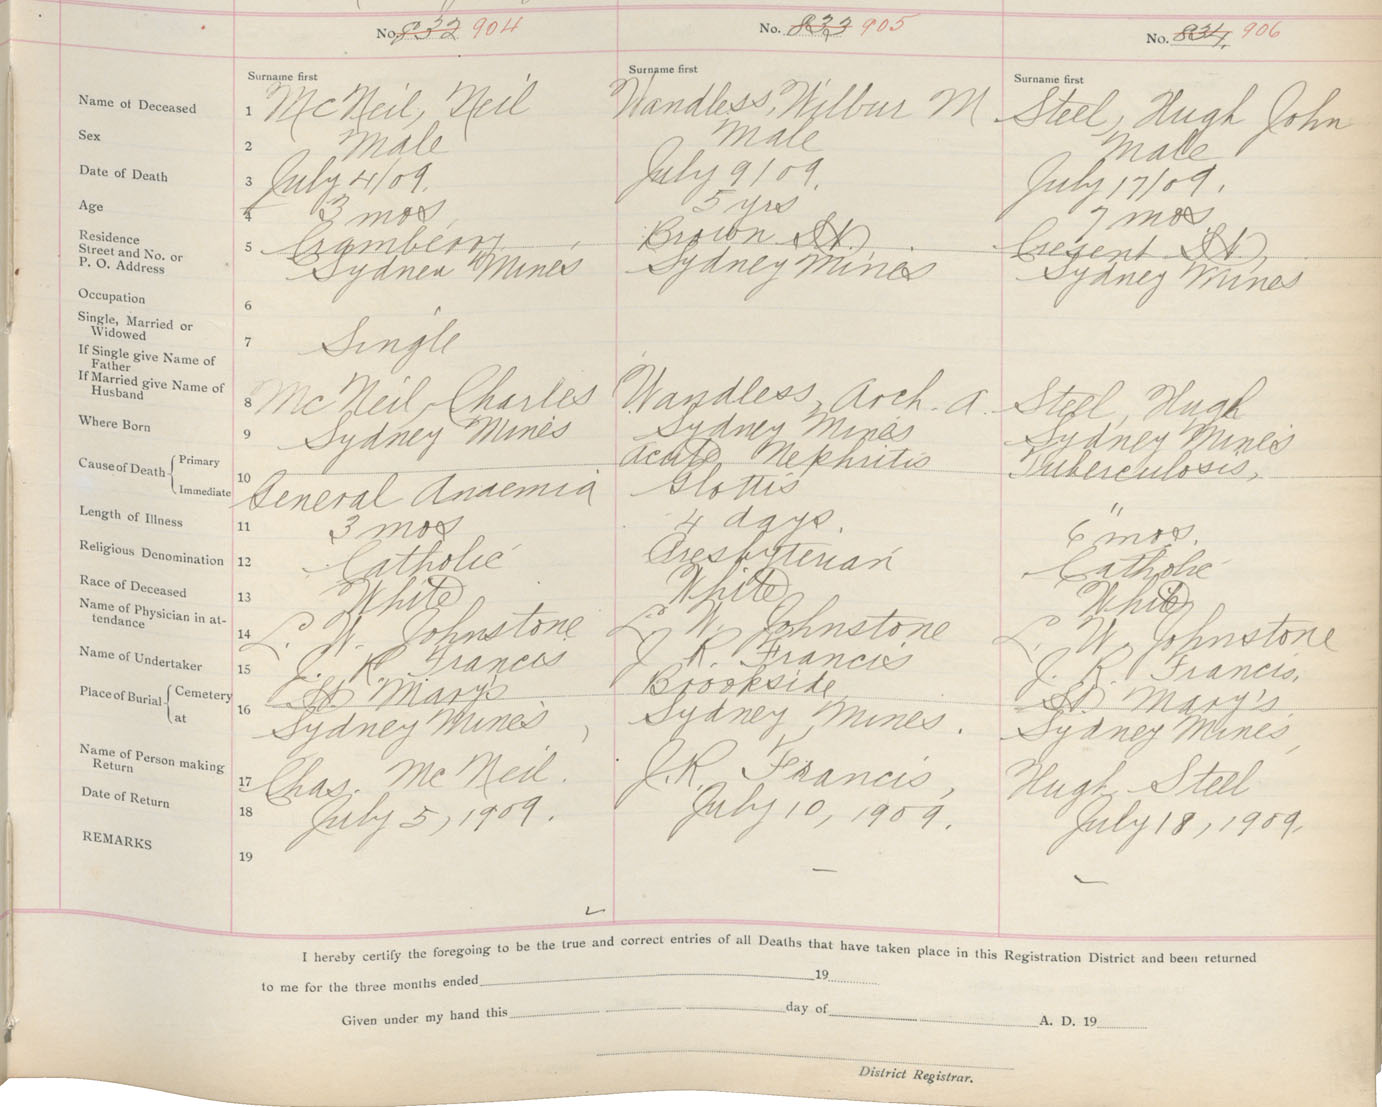 No. 832 904
No. 833 905
No. 834 906
Surname first
Surname first
Surname first
Name of Deceased 1 McNeil, Neil
Wandless, Wilbur M
Steel, Hugh John
Sex 2 Male
Male
Male
Date of Death 3 July 4/09.
July 9/09.
July 17/09.
Age 4 3 mos
5 yrs
7 mos
Residence
Street and No. or
P. O. Address
5 Cramberry
Sydney Mines
Brown St.
Sydney Mines
Cresent St.,
Sydney Mines
Occupation 6
Single, Married or
Widowed
7 Single
If Single give Name of
Father
If Married give Name of
Husband
8 McNeil, Charles
Wandless, Arch. A.
Steel, Hugh
Where Born 9 Sydney Mines
Sydney Mines
Sydney Mines
Cause of Death Primary
Immediate
10
General Anaemia
Acute Nephritis
Glottis
Tuberculosis,
"
Length of Illness 11 3 mos
4 days.
6 mos.
Religious Denomination 12 Catholic
Presbyterian
Catholic
Race of Deceased 13 White
White
White
Name of Physician in at-
tendance
14 L. W. Johnstone
L. W. Johnstone
L. W. Johnstone
Name of Undertaker 15 J. R. Francis
J. R. Francis
J. R. Francis.
Place of Burial Cemetery
at
16 St Mary's
Sydney Mines,
Brookside,
Sydney Mines.
St Mary's,
Sydney Mines,
Name of Person making
Return
17 Chas. McNeil.
J. R. Francis,
Hugh Steel
Date of Return 18 July 5, 1909.
July 10, 1909.
July 18, 1909.
REMARKS 19
I hereby certify the foregoing to be the true and correct entries of all Deaths that have taken place in this Registration District and been returned
to me for the three months ended 19
Given under my hand this day of A. D. 19
District Registrar.